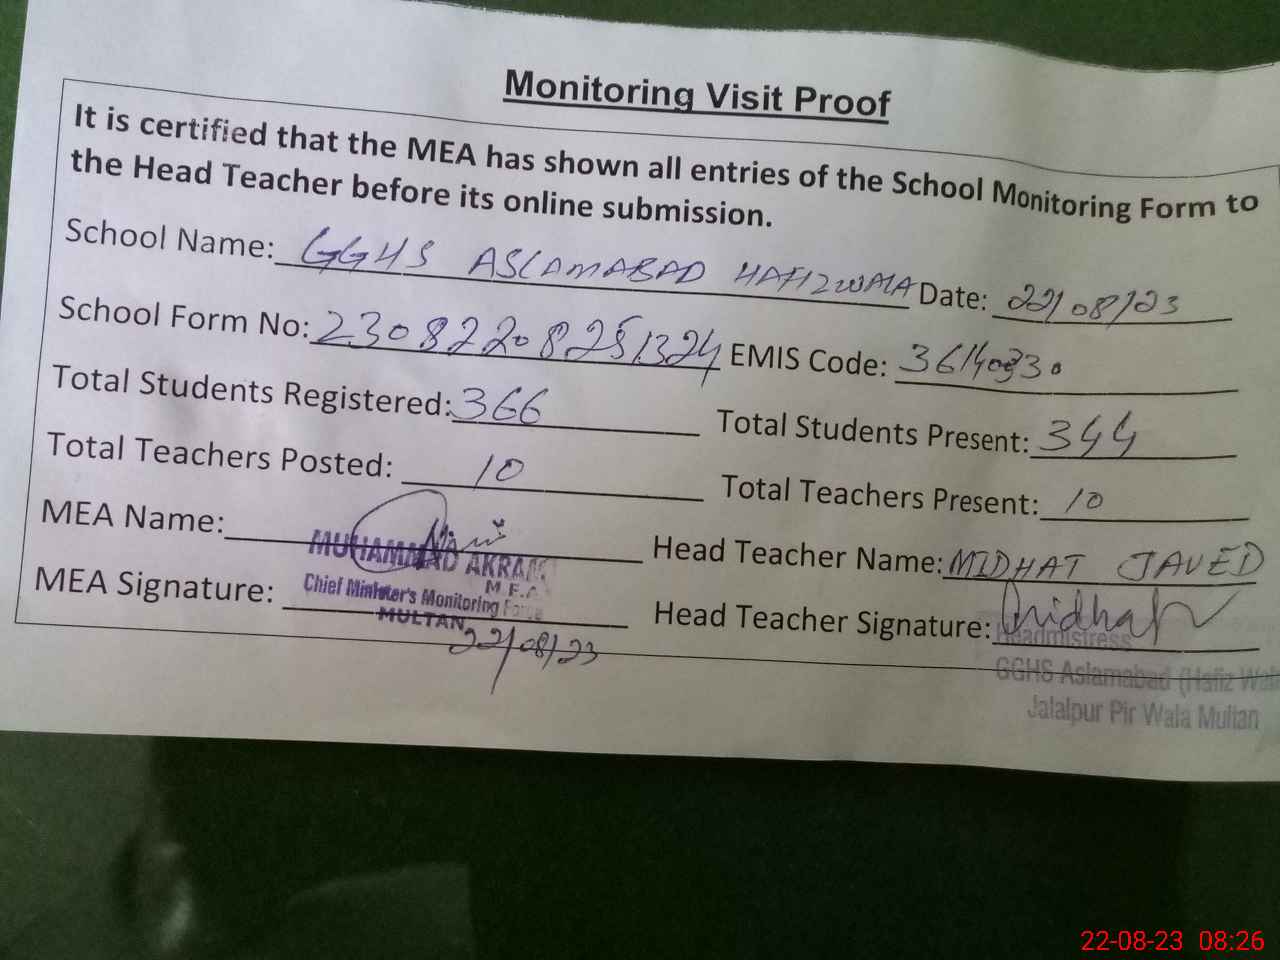 Monitoring Visit Proof
It is certified that the MEA has shown all entries of the School Monitoring Form to
the Head Teacher before its online submission.
School Name: GGHS ASLAMABAD HAFIZWALA Date: 22/08/23
School Form No: 23082208251324 EMIS Code:
Total Students Registered: 366 Total Students Present: 344
Total Teachers Posted: 10 Total Teachers Present: 10
MEA Name: Head Teacher Name: MIDHAT JAVED
MUHAMMAD AKRAM
M.E.A
MEA Signature: Head Teacher Signature: Midhat
Chief Minister's Monitoring Force
MULTAN
22/08/23
Headmistress
GGHS Aslamabad (Hafiz Wala
Jalalpur Pir Wala Multan
22-08-23 08:26